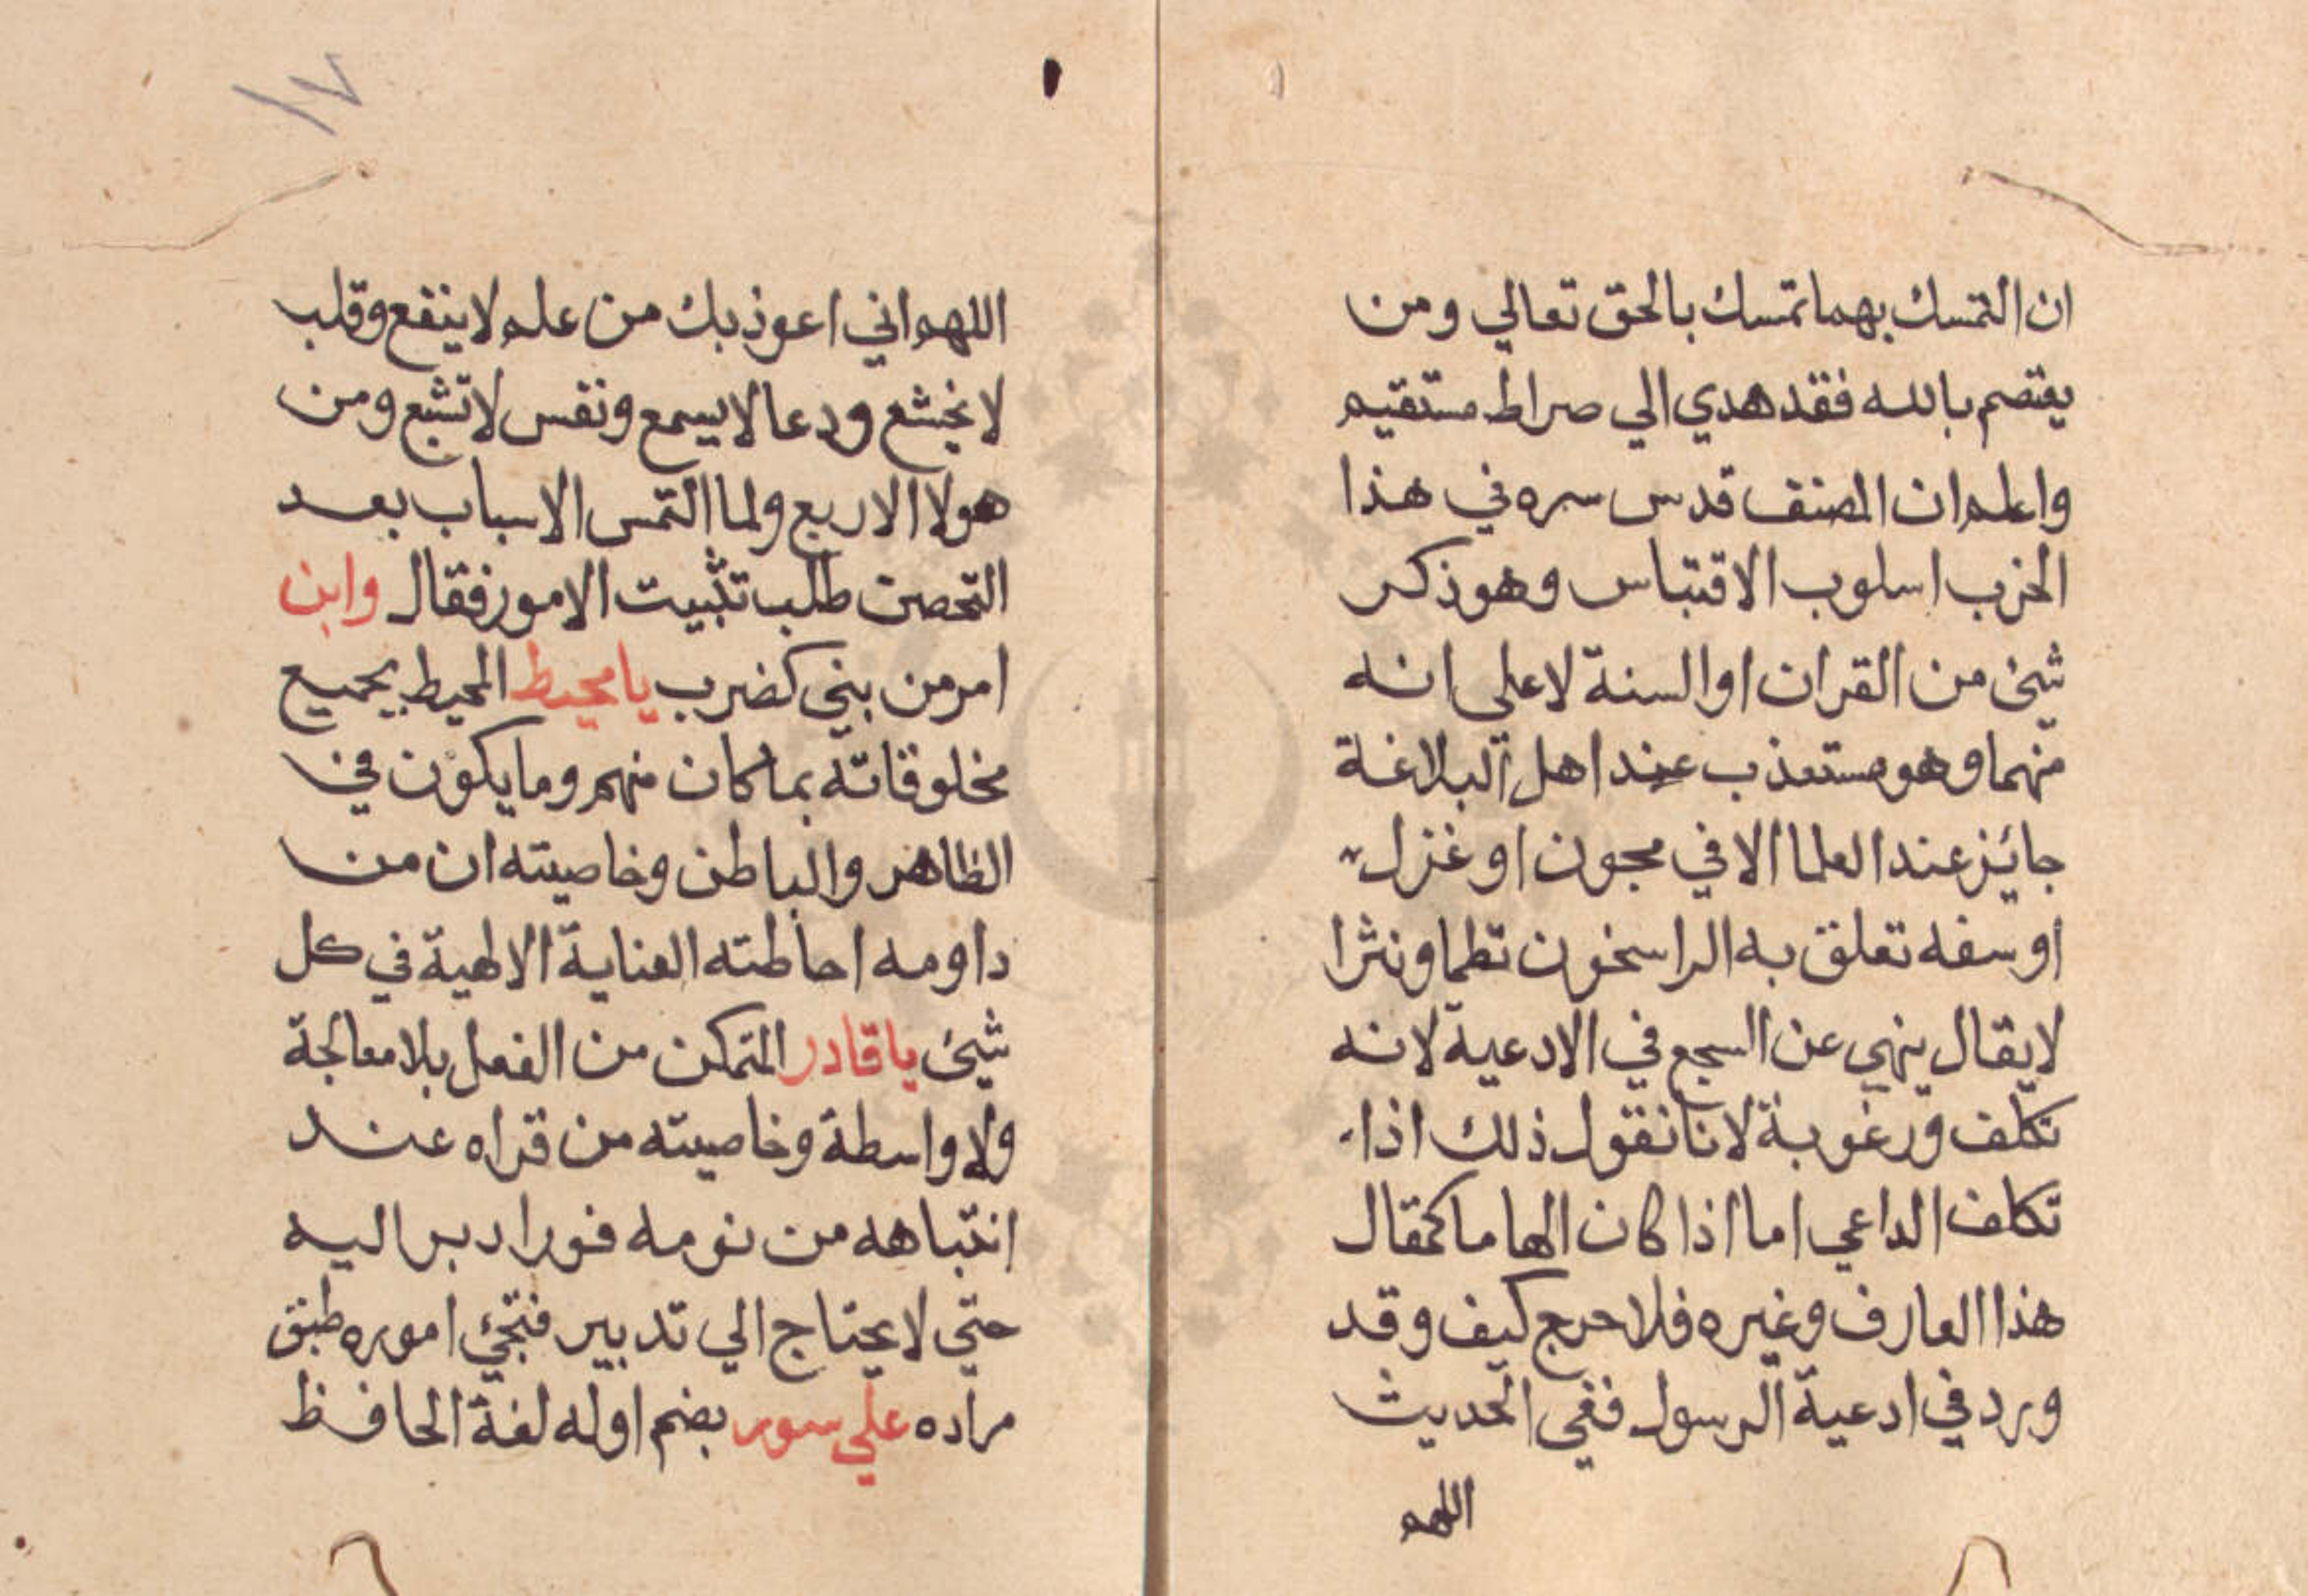 ان التمسك بهما تمسك بالحق تعالي ومن
يعتصم بالله فقد هدي الي صراط مستقيم
واعلم ان المصنف قدس سره في هذا
الحزب اسلوب الاقتباس وهو ذكر
شيئ من القران او السنة لا علي انه
منهما وهو مستعذب عند اهل البلاغة
جائز عند العلما الا في مجون او غزل
او سفه تعلق به الراسخون نظما ونثرا
لا يقال ينهي عن السجع في الادعية لانه
تكلف ورغوبة لانا نقول ذلك اذا
تكلف الداعي اما اذا كان الهاما كمقال
هذا العارف وغيره فلا حرج كيف وقد
ورد في ادعية الرسول ففي الحديث
اللهم
١٧
اللهم اني اعوذ بك من علم لا ينفع وقلب
لا يخشع ودعا لا يسمع ونفس لا تشبع ومن
هولا الاربع ولما التمس الاسباب بعد
التحصن طلب تثبيت الامور فقال وابن
امر من بني كضرب يا محيط المحيط بجميع
مخلوقاته بما كان منهم وما يكون في
الظاهر والباطن وخاصيته ان من
داومه احاطته العناية الالهية في كل
شيئ يا قادر المتمكن من الفعل بلا معالجة
ولا واسطة وخاصيته من قراه عند
انتباهه من نومه فورا دبر اليه
حتي لا يحتاج الي تدبير فتجئ اموره طبق
مراده علي سور بضم اوله لغة الحافظ